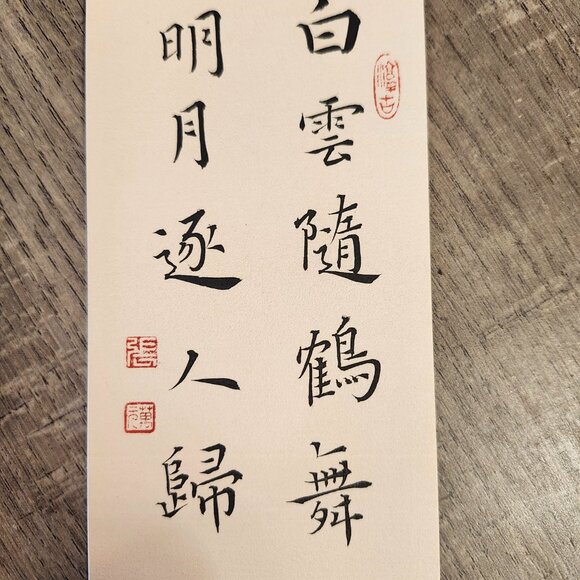 白雲隨鶴舞
明月逐人歸